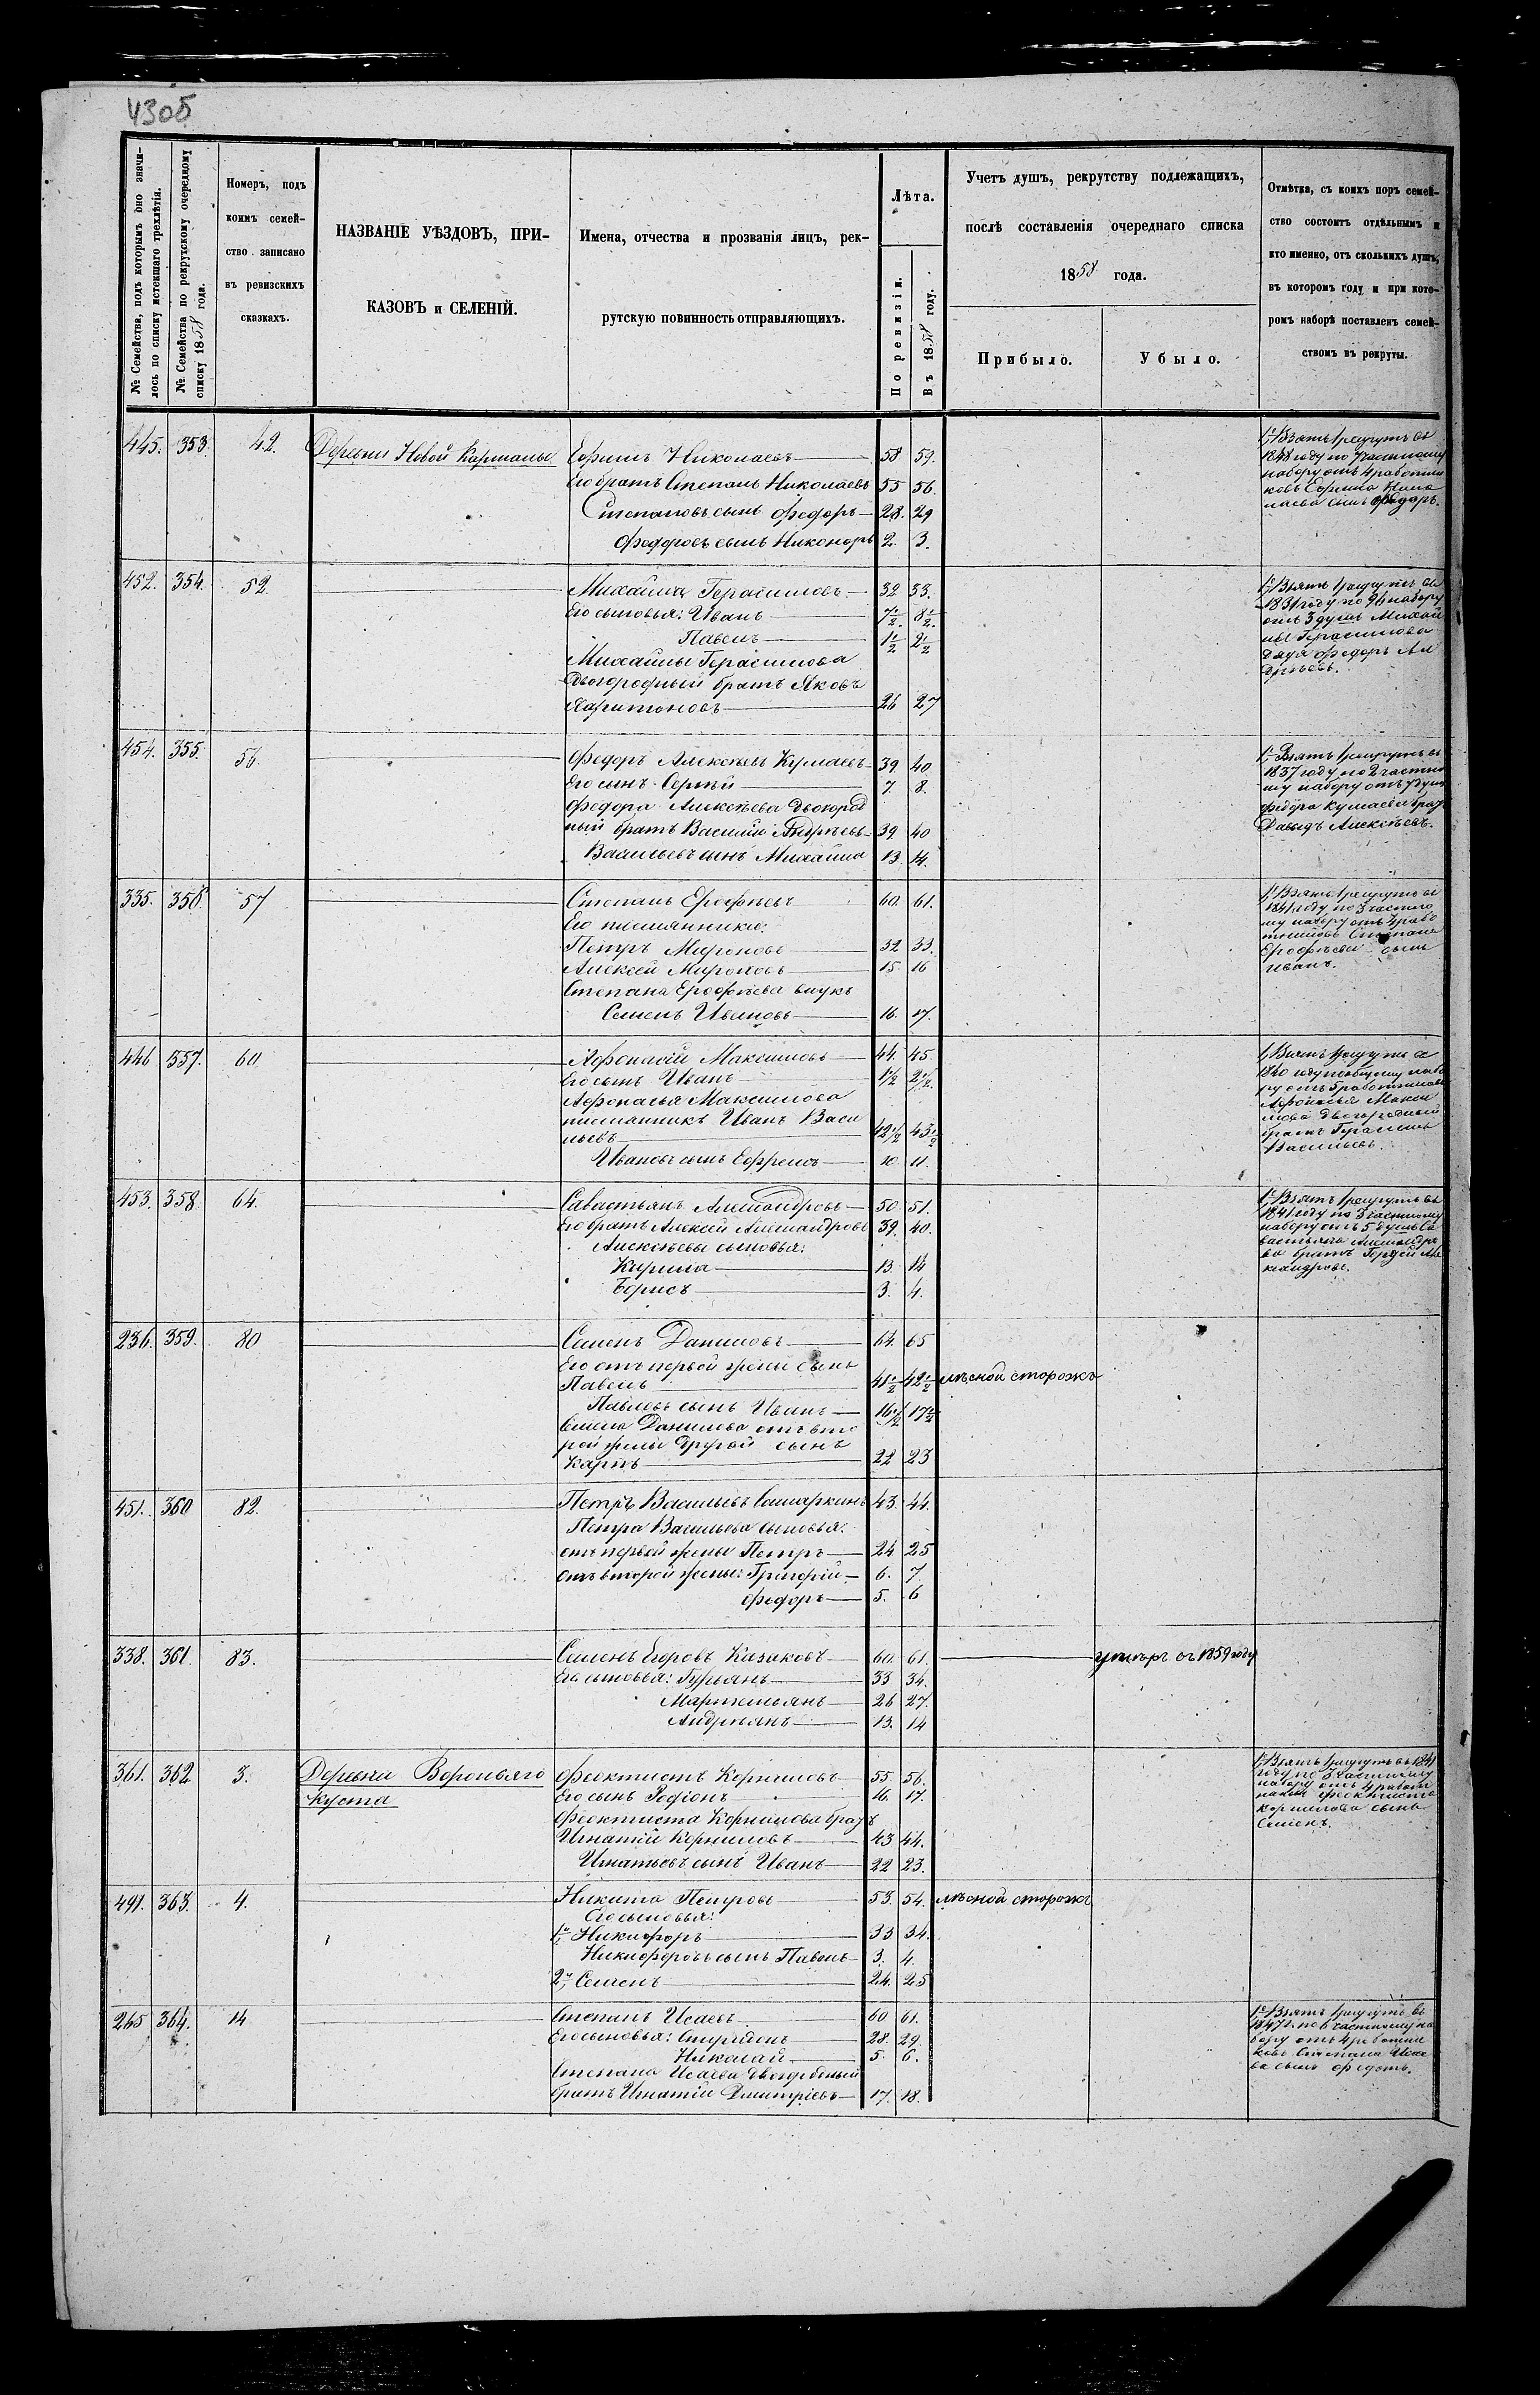 430б
№ Семейства, подъ которымъ оно значи-
лось по списку истекшаго трехлѣтія.
№ Семейства по рекрутскому очередному
списку 1858 года.
Номеръ, подъ
коимъ семей-
ство записано
въ ревизскихъ
сказкахъ.
НАЗВАНІЕ УѢЗДОВЪ, ПРИ-
КАЗОВЪ и СЕЛЕНІЙ.
Имена, отчества и прозванія лицъ, рек-
рутскую повинность отправляющихъ.
Лѣта.
По ревизіи.
Въ 1858 году.
Учетъ душъ, рекрутству подлежащихъ,
послѣ составленія очереднаго списка
1858 года.
Прибыло.
Убыло.
Отмѣтка, съ коихъ поръ семей-
ство состоитъ отдѣльнымъ и
кто именно, отъ сколькихъ душъ,
въ которомъ году и при кото-
ромъ наборѣ поставленъ семей-
ствомъ въ рекруты.
445. 353. 42. Деревни Новой Кармалы Ефимъ Николаевъ 58 59.
Его братъ Степанъ Николаевъ 55 56.
Степановъ сынъ Федоръ 28. 29
Федоровъ сынъ Никоноръ 2. 3.
1, Взятъ 1 рекрутъ въ
1848 году по 7 частному
набору отъ 4 работни
ковъ Ефима Нико
лаева сынъ Федоръ.
452. 354. 52. Михайла Герасимовъ 32 33.
Его сыновья: Иванъ 7½. 8½.
Павелъ 1½ 2½
Михайлы Герасимова
двогородный братъ Яковъ
Харитоновъ 26 27
1, Взятъ 1 рекрутъ въ
1831 году по 96 набору
отъ 3 душъ Михай
лы Герасимова
дядя Федоръ Ан
дрѣевъ.
454. 355. 56. Федоръ Алексѣевъ Кумаевъ 39. 40
Его сынъ Сергѣй 7 8.
Федора Алексѣева двогород
ный братъ Василій Андрѣевъ 39 40
Васильевъ сынъ Михайла 13. 14.
1, Взятъ 1 рекрутъ въ
1837 году по 2 частно
му набору отъ 7 душъ
Федора Кумаева братъ
Давыдъ Алексѣевъ.
335. 356. 57 Степанъ Ерофѣевъ 60. 61.
Его племянники:
Петръ Мироновъ 32 33.
Алексей Мироновъ 15. 16
Степана Ерофѣева внукъ
Семенъ Ивановъ 16. 17.
1, Взятъ 1 рекрутъ въ
1841 году по 3 частно
му набору отъ 4 рабо
тниковъ Степана
Ерофѣева сынъ
Иванъ.
446 357. 60. Афонасій Максимовъ 44. 45.
Его сынъ Иванъ 1½ 2½.
Афонасья Максимова
племянникъ Иванъ Васи
льевъ 42½ 43½
Ивановъ сынъ Ефремъ 10. 11.
1, Взятъ 1 рекрутъ въ
1840 году по общему набо
ру отъ 5 работниковъ
Афонасья Макси
мова двогородный
братъ Герасимъ
Васильевъ.
453. 358. 64. Савастьянъ Александровъ 50. 51.
Его братъ Алексей Александровъ 39. 40.
Алексѣевы сыновья:
Кирила 13. 14
Борисъ 3. 4.
1, Взятъ 1 рекрутъ въ
1841 году по 3 частному
набору отъ 5 душъ Са
вастьяна Александро
ва братъ Гордѣй Але
ксандровъ.
236. 359. 80 Семенъ Даниловъ 64. 65
Его отъ первой жены сынъ
Павелъ 41½ 42½ лѣсной сторожъ
Павловъ сынъ Иванъ 16½ 17½
Семена Данилова отъ вто
рой жены другой сынъ
Карпъ 22 23
451. 360 82. Петръ Васильевъ Самаркинъ 43. 44.
Петра Васильева сыновья:
отъ первой жены Петръ 24 25
отъ второй жены: Григорій 6. 7
Федоръ 5. 6
338. 361. 83. Семенъ Егоровъ Казаковъ 60. 61. умеръ въ 1859 году
Его сыновья: Гурьянъ 33 34.
Мартемьянъ 26 27.
Андреянъ 13. 14
361. 362. 3. Деревни Вороньяго Феоктистъ Корниловъ 55. 56.
Куста Его сынъ Родіонъ 16. 17.
Феоктиста Корнилова братъ
Игнатій Корниловъ 43 44.
Игнатьевъ сынъ Иванъ 22 23.
1, Взятъ 1 рекрутъ въ 1841
году по 3 частному
набору отъ 4 работ
никовъ Феоктиста
Корнилова сынъ
Семенъ.
491. 363. 4. Никита Петровъ 53. 54. лѣсной сторожъ
Его сыновья:
1й Никифоръ 33 34.
Никифоровъ сынъ Павелъ 3. 4.
2й Семенъ 24. 25
265 364. 14 Степанъ Исаевъ 60 61.
Его сыновья: Спиридонъ 28. 29.
Николай 5. 6.
Степана Исаева двогородный
братъ Игнатій Дмитріевъ 17. 18.
1, Взятъ 1 рекрутъ въ
1847 г. по 6 частному на
бору отъ 4 работни
ковъ Степана Исае
ва сынъ Федотъ.